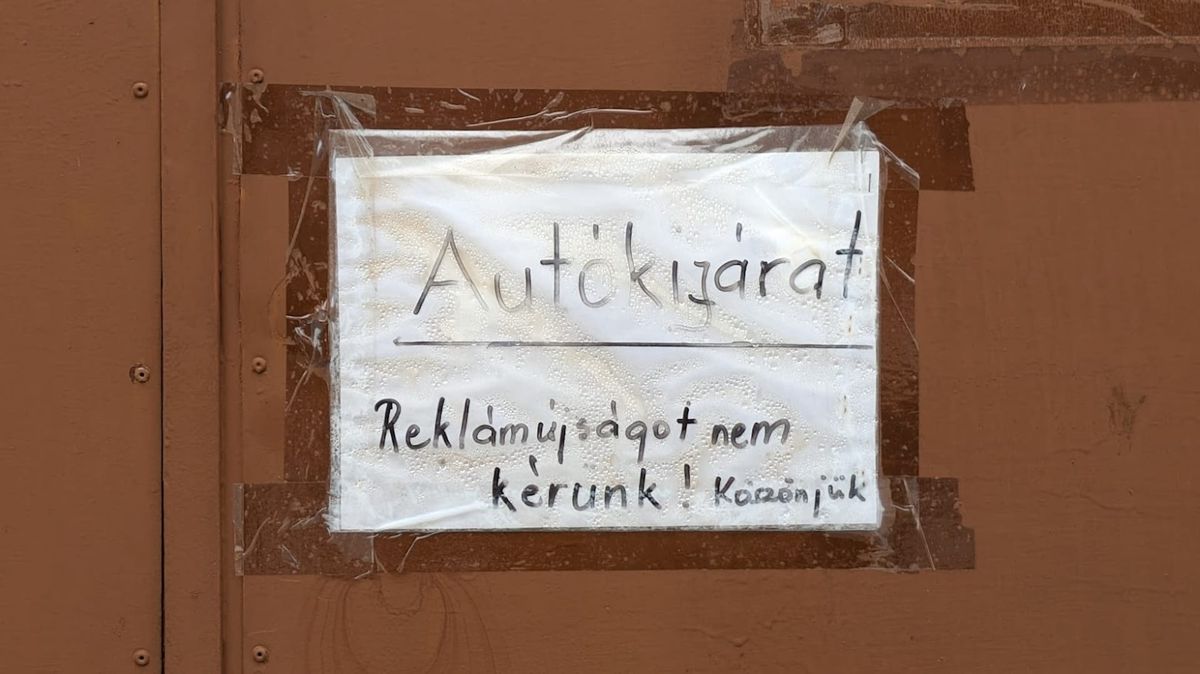 Autókijárat
Reklámújságot nem
kérünk! Köszönjük